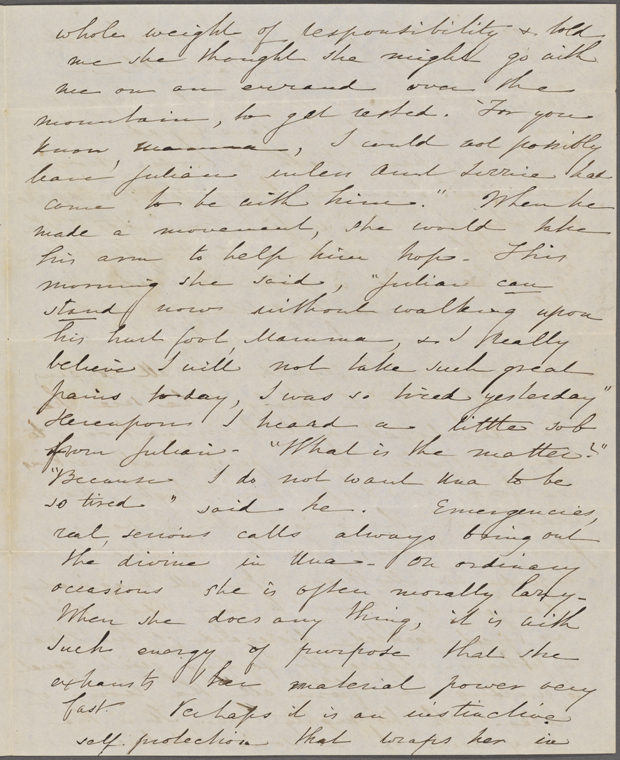 whole weight of responsibility & told
me she thought she might go with
me on an errand over the
mountain, to get rested. "For you
know mamma, I could not possibly
leave Julian unless Aunt Lizzie had
come to be with him." When he
made a movement, she would take
his arm to help him hop. This
morning she said, "Julian can
stand now without walking upon
his hurt foot, Mamma, & I really
believe I will not take such great
pains today, I was so tired yesterday"
Hereupon I heard a little sob
from Julian - "What is the matter?"
"Because I do not want Una to be
so tired" said he. Emergencies,
real, serious calls always bring out
the divine in Una - On ordinary
occasions she is often morally lazy -
When she does any thing, it is with
such energy of purpose that she
exhausts her material power very
fast. Perhaps it is an instinctive
self-protection that wraps her in